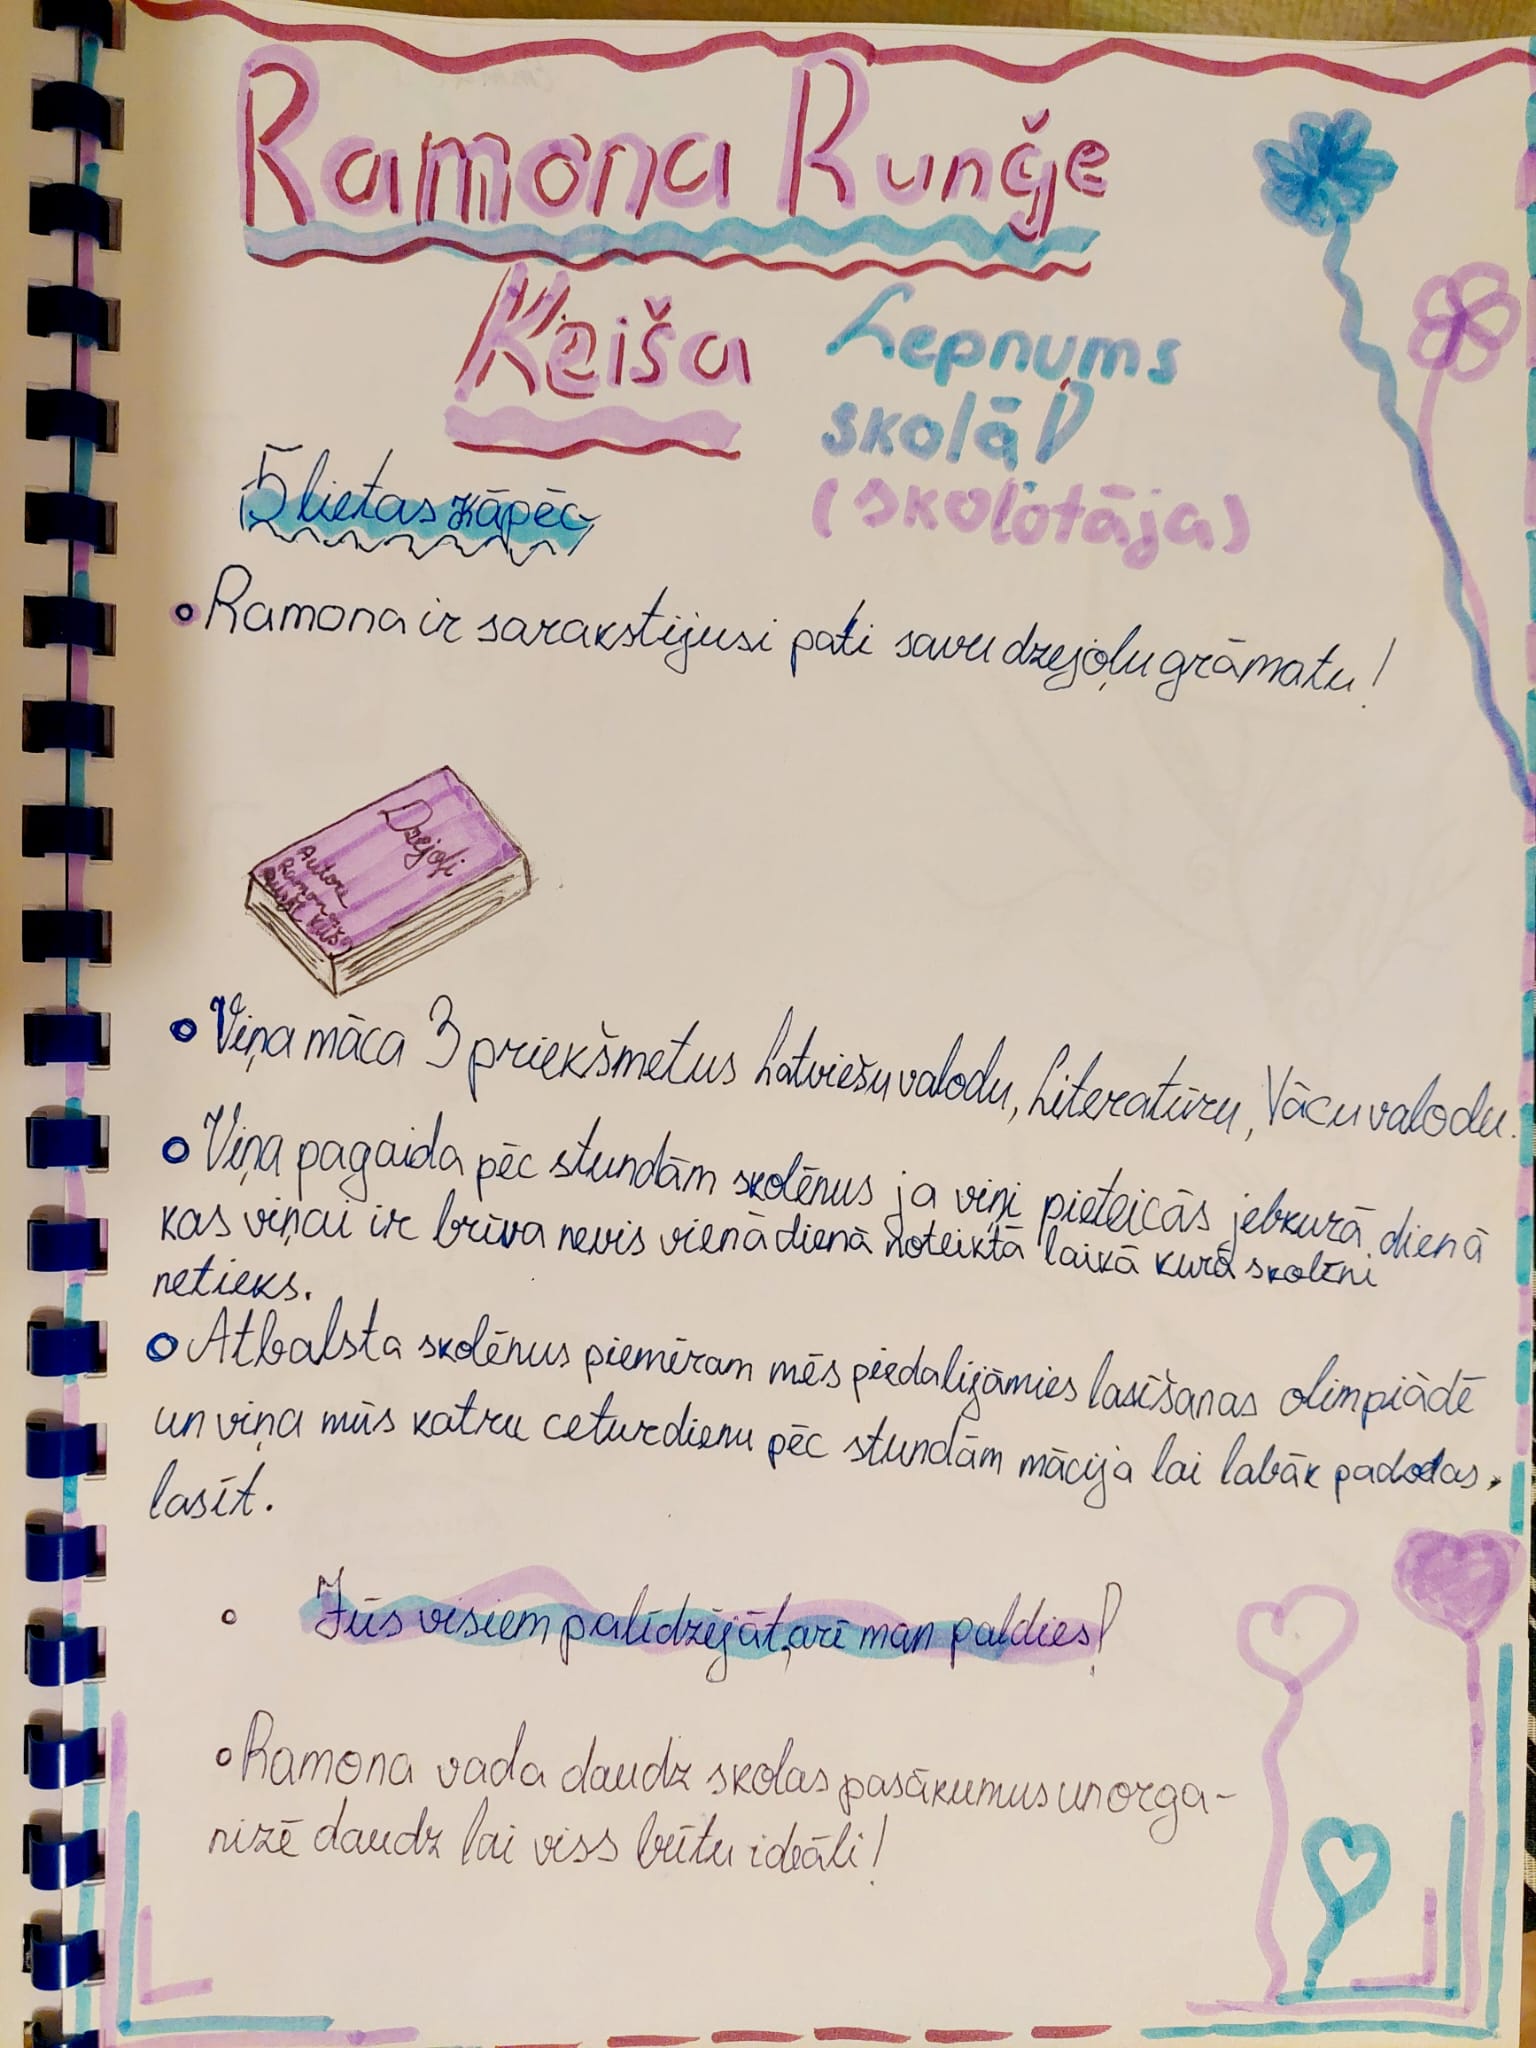 Ramona Runģe
Keiša
Lepnums
skolā
(skolotāja)
5 lietas kāpēc
Ramona ir sarakstijusi pati savu dzejoļu grāmatu!
Dzejoļi
Autore
Ramona
Viņa māca 3 priekšmetus Latviešu valodu, Literatūru, Vācu valodu.
Viņa pagaida pēc stundām skolēnus ja viņi pieteicās jebkurā dienā
kas viņai ir brīva nevis vienā dienā noteiktā laikā kurā skolēni
netieks.
Atbalsta skolēnus piemēram mēs piedalijāmies lasīšanas olimpiādē
un viņa mūs katru ceturdienu pēc stundām mācija lai labāk padodas
lasīt.
Jūs visiem palīdzējāt, arī man paldies!
Ramona vada daudz skolas pasākumus un orga-
nizē daudz lai viss būtu ideāli!